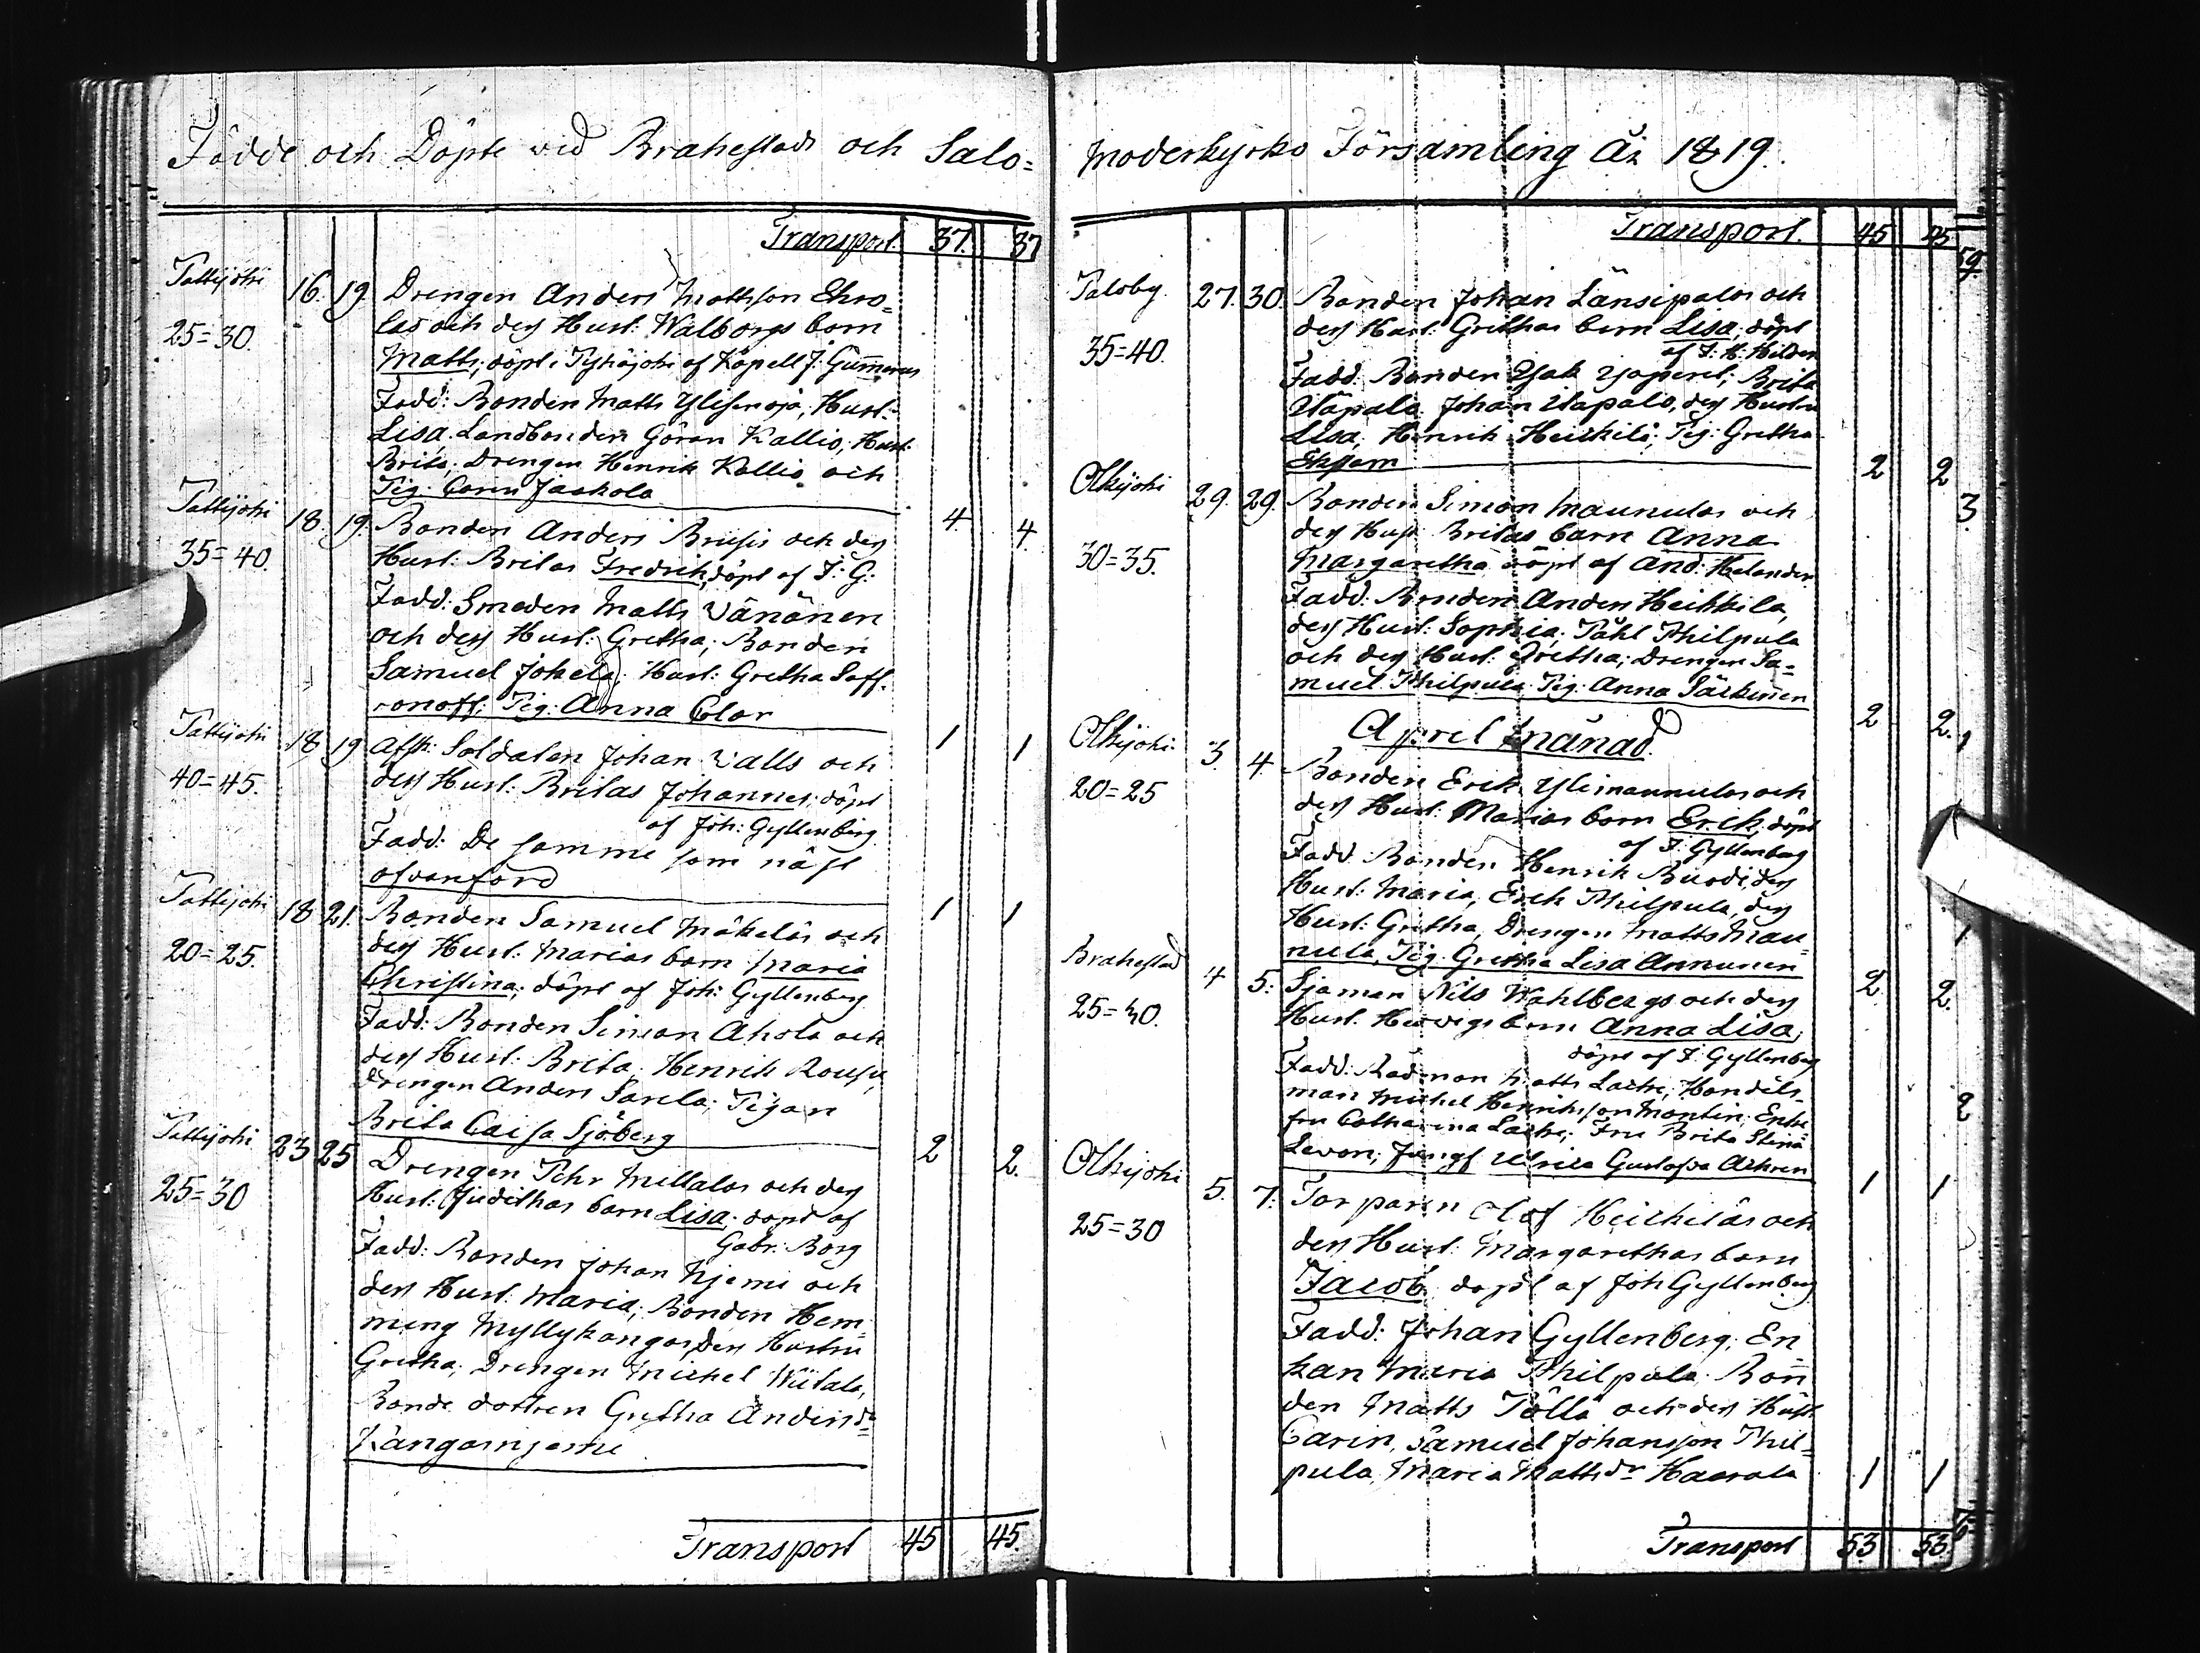 Födde och Döpte vid Brahestads och Salo-
Transport 37. 37
Pattijoki 16. 19 Drengen Anders Mattsson Ehro-
25=30. las och dess Hust: Walborgs barn
Matts, döpt i Pyhäjoki af Kapell J. Gummerus
Fadd: Bonden Matts Ylisenoja, Hust:
Lisa. Landbonden Göran Kallio, Hust:
Brita, Drengen Henrik Kallio och
Pig. Carin Jaakola 4. 4.
Pattijoki 18. 19. Bonden Anders Brusis och dess
35=40. Hust: Britas Fredrik, döpt af J: G:
Fadd: Smeden Matts Wänänen
och dess Hust: Gretha; Bonden
Samuel Jokela, Hust: Gretha Saff-
ronoff; Pig: Anna Clar 1 1
Pattijoki 18 19 Afsk: Soldaten Johan Walls och
40=45. dess Hust: Britas Johannes; döpt
af Joh: Gyllenberg
Fadd: De samme som näst
ofvanförd 1 1
Pattijoki 18 21. Bonden Samuel Mäkeläs och
20=25. dess Hust: Marias barn Maria
Christina; döpt af Joh: Gyllenberg
Fadd: Bonden Simon Ahola och
dess Hust: Brita, Henrik Rousu,
Drengen Anders Sarela, Pigan
Brita Caisa Sjöberg 2 2.
Pattijoki 23 25 Drengen Pehr Mellalas och dess
25=30 Hust: Judithas barn Lisa. döpt af
Gabr: Borg
Fadd: Bonden Johan Njemi och
dess Hust: Maria; Bonden Hem-
ming Myllykangas, dess Hustru
Gretha; Drengen Michel Wiitala,
Bonde dottren Gretha Andersdr
Kangasnjemi
Transport 45 45.
Moderkyrko Församling År 1819.
Transport. 45 45
59.
Paloby 27. 30. Bonden Johan Länsipalos och
35=40. dess Hust: Grethas barn Lisa; döpt
af J: H: Hilden
Fadd: Bonden Brita
Johan dess Hustru
Lisa; Henrik Heickilä; Pig: Gretha
2 2
Olkijoki 29. 29. Bonden Simon Maunulas och 3.
30=35. dess Hust Britas barn Anna
Margaretha döpt af And: Helander
Fadd: Bonden Anders Heikkilä,
dess Hust: Sophia; Påhl Philpula
och dess Hust: Gretha; Drengen Sa-
muel Philpula Pig: Anna Särkinen 2 2.
April Månad.
Olkijoki 3. 4. Bonden Erik Ylimaunulas och 1
20=25 dess Hust: Marias barn Erik, döpt
af J: Gyllenberg
Fadd: Bonden Henrik Ruodi, dess
Hust: Maria, Erik Philpula, dess
Hust: Gretha, Drengen Matts Mau- 1
nula, Pig: Gretha Lisa Annunen 2 2.
Brahestad 4 5. Sjöman Nils Wahlbergs och dess
25=30. Hust. Hedvigs barn Anna Lisa;
döpt af J: Gyllenberg
Fadd: Rådman Matts Lackre, Handels-
man Michel Henriksson Montin; Enke 2
fru Catharina Lackre; Fru Brita Stina
Levon; Jungf Ulrica Gustafva Achren 1 1
Olkijoki 5. 7. Torparen Olof Heickiläs och
25=30 dess Hust: Margarethas barn
Jacob döpt af Joh Gyllenberg
Fadd: Johan Gyllenberg; En
kan Maria Philpula Bon
den Matts Tölli och dess Hust
Carin, Samuel Johansson Phil-
pula, Maria Mattsdr Haarala 1 1
Transport 53 53.